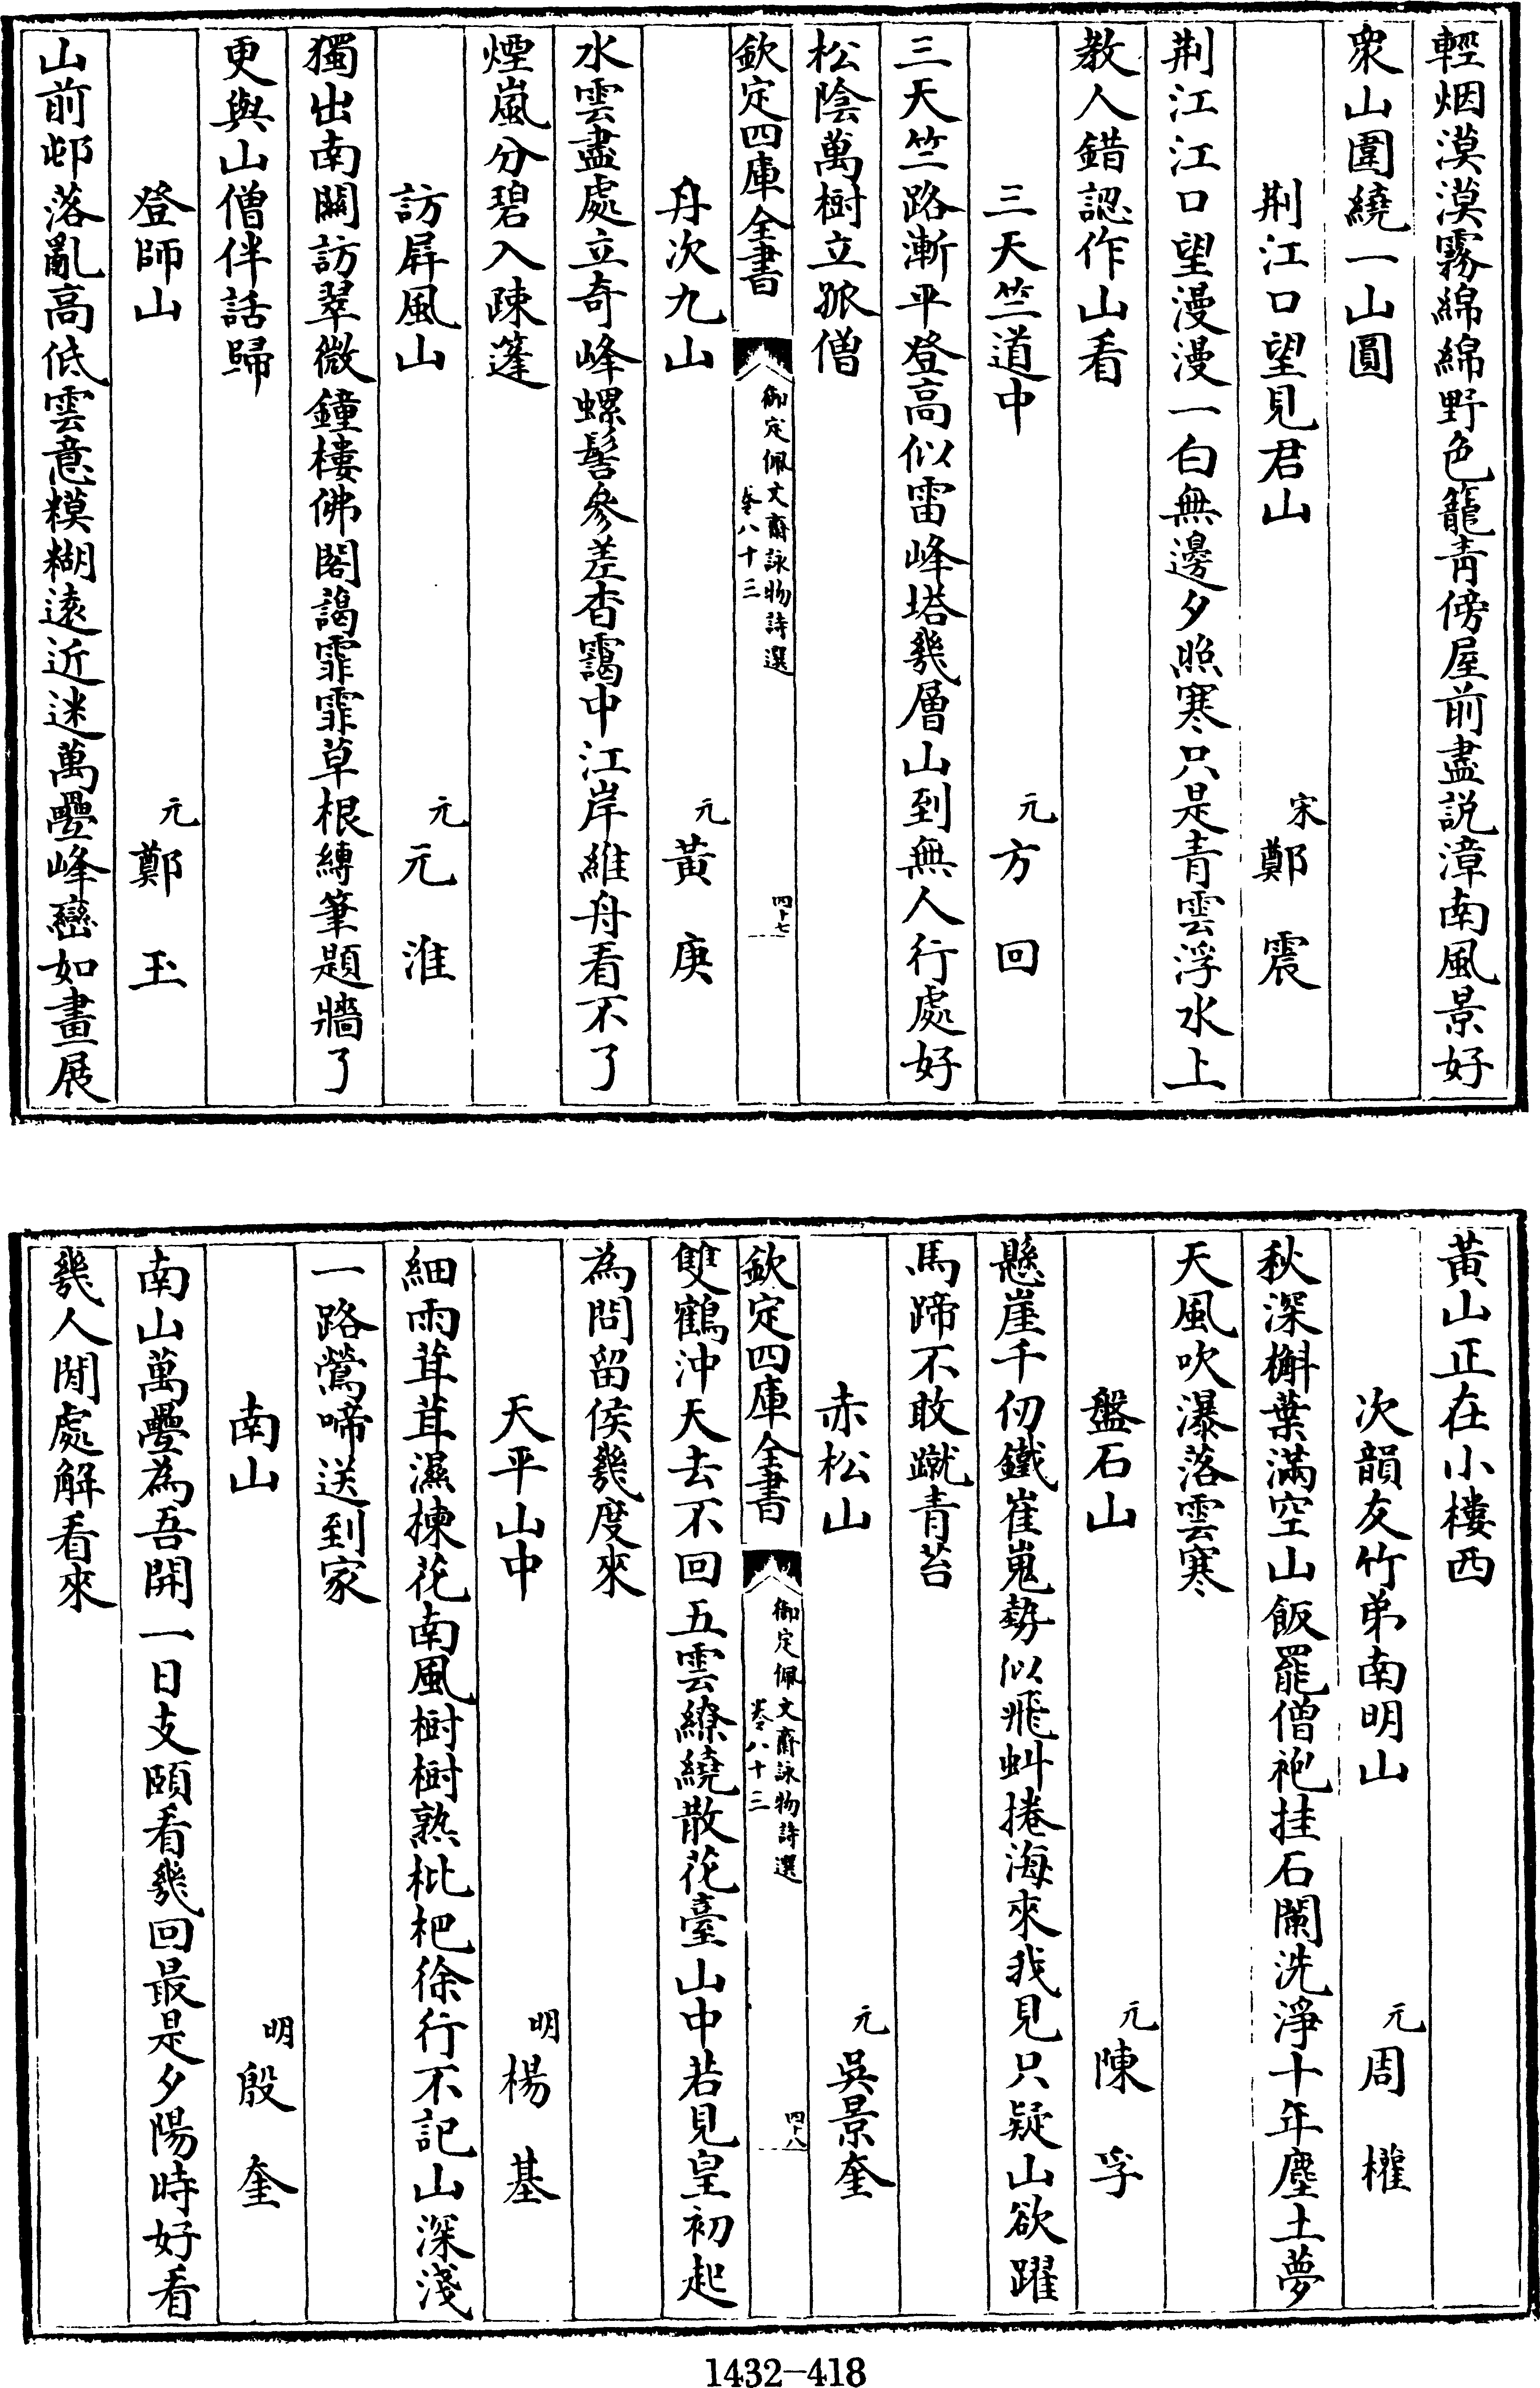 輕烟漠漠霧綿綿野色籠青傍屋前盡說漳南風景好
衆山圍繞一山圓
荆江口望見君山 宋 鄭震
荆江江口望漫漫一白無邊夕照寒只是青雲浮水上
教人錯認作山看
三天竺道中 元 方回
三天竺路漸平登高似雷峰塔幾層山到無人行處好
松陰萬樹立孤僧
欽定四庫全書 御定佩文齋詠物詩選 卷八十三 四十七
舟次九山 元 黃庚
水雲盡處立奇峰螺髻參差杳靄中江岸維舟看不了
煙嵐分碧入疎篷
訪屛風山 元 元淮
獨出南關訪翠微鐘樓佛閣靄霏霏草根縛筆題牆了
更與山僧伴話歸
登師山 元 鄭玉
山前邨落亂高低雲意糢糊遠近迷萬疊峰巒如畫展
黃山正在小樓西
次韻友竹弟南明山 元 周權
秋深槲葉滿空山飯罷僧袍挂石闌洗淨十年塵土夢
天風吹瀑落雲寒
盤石山 元 陳孚
懸崖千仞鐵崔嵬勢似飛虯捲海來我見只疑山欲躍
馬蹄不敢蹴青苔
赤松山 元 吳景奎
欽定四庫全書 御定佩文齋詠物詩選 卷八十三 四十八
雙鶴沖天去不回五雲繚繞散花臺山中若見皇初起
為問留侯幾度來
天平山中 明 楊基
細雨茸茸濕楝花南風樹樹熟枇杷徐行不記山深淺
一路鶯啼送到家
南山 明 殷奎
南山萬疊為吾開一日支頤看幾回最是夕陽時好看
幾人閒處解看來
1432-418